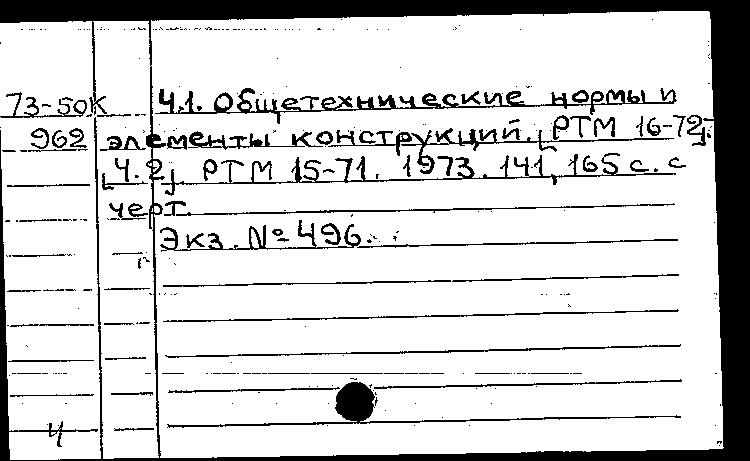 73-50К Ч.1. Общетехнические нормы и
962 элементы конструкций. [РТМ 16-72].
[Ч.2] РТМ 15-71. 1973. 141, 165 с. с
черт.
Экз. № 496.
4